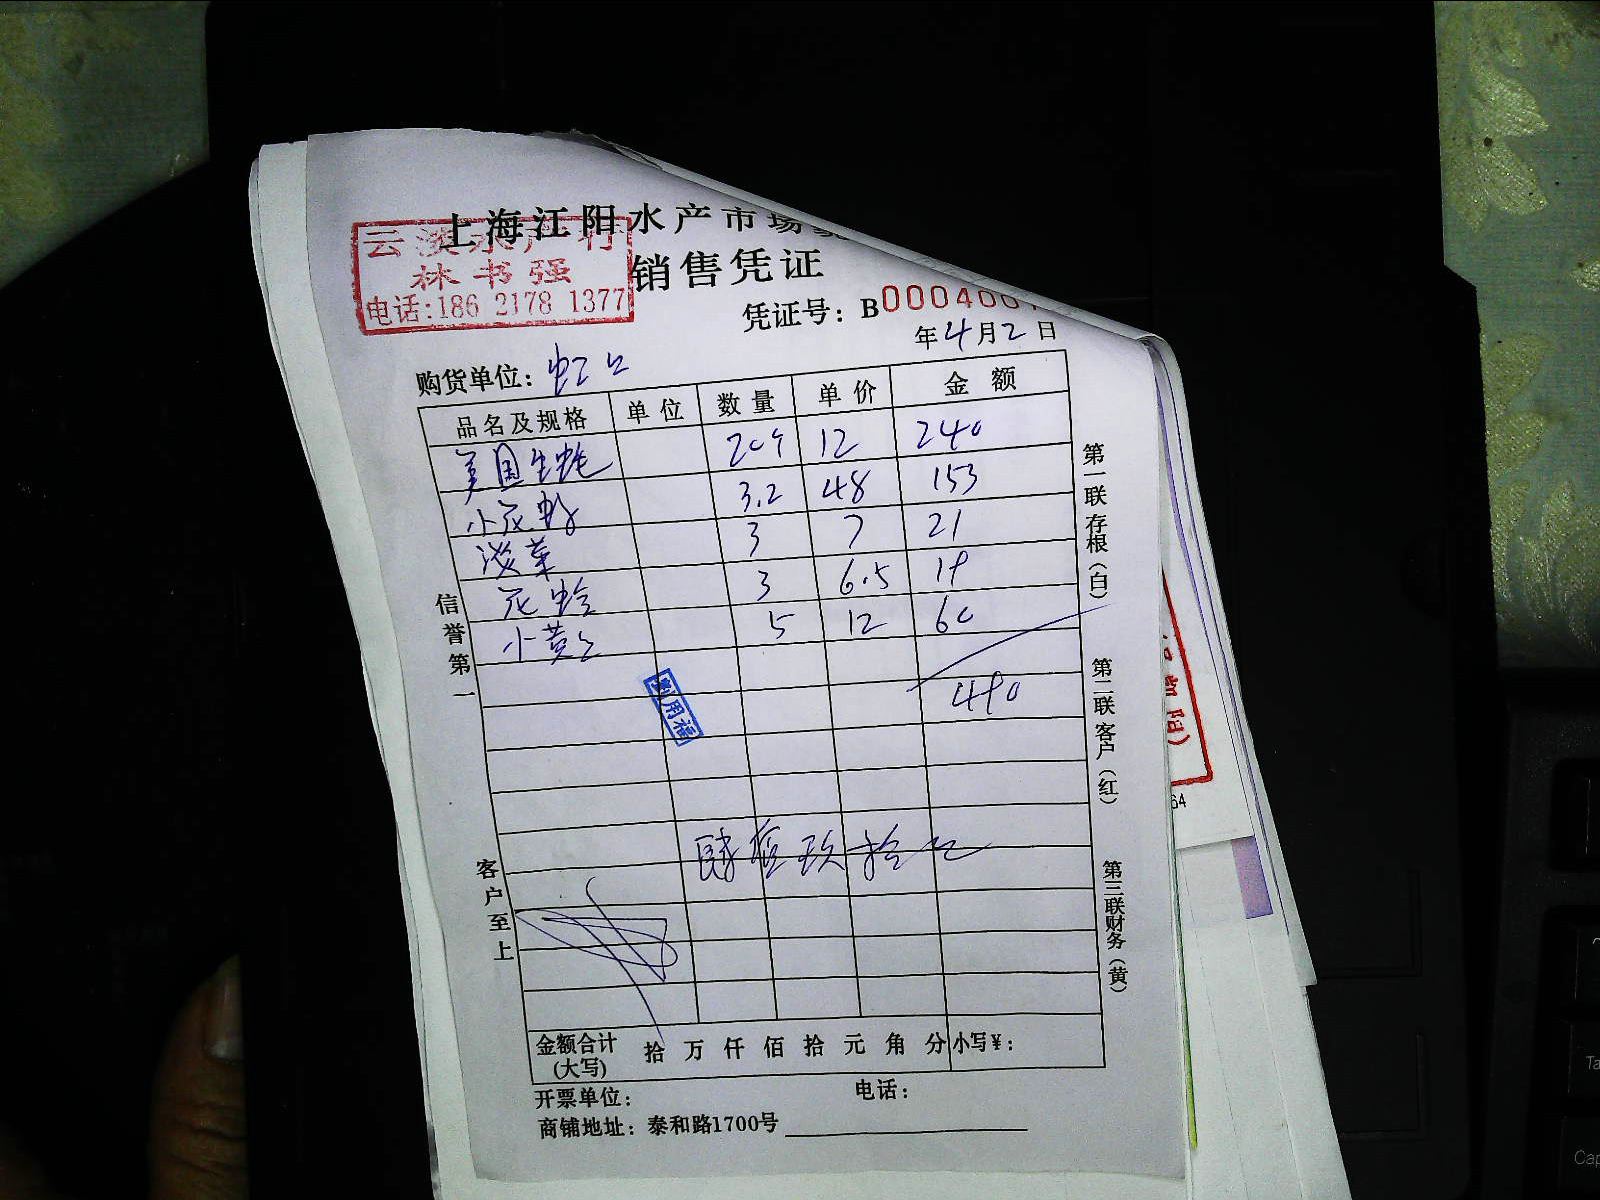 上海江阳水产市场
云淡水产行
林书强
电话:186 2178 1377
销售凭证
凭证号：B0004001
年4月2日
购货单位：虹口
品名及规格 单位 数量 单价 金额
美国生蚝 20个 12 240
小花 3.2 48 153
淡菜 3 7 21
花蛤 3 6.5 19
小黄 5 12 60
490
敷用福
肆佰玖拾元
金额合计(大写) 拾 万 仟 佰 拾 元 角 分 小写¥：
开票单位： 电话：
商铺地址：泰和路1700号
信誉第一
客户至上
第一联存根（白）
第二联客户（红）
第三联财务（黄）
64